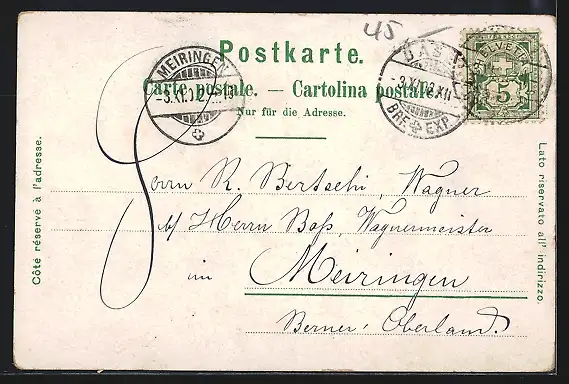 45
Postkarte.
Carte postale. — Cartolina postale.
Nur für die Adresse.
MEIRINGEN
-3.XI.02.
BASEL
3.XI.02.XII
BRF. EXP.
HELVETIA
5
Côté réservé à l'adresse.
Lato riservato all' indirizzo.
Herrn R. Bertschi, Wagner
b/ Herrn Boß, Wagnermeister
im Meiringen
Berner Oberland.